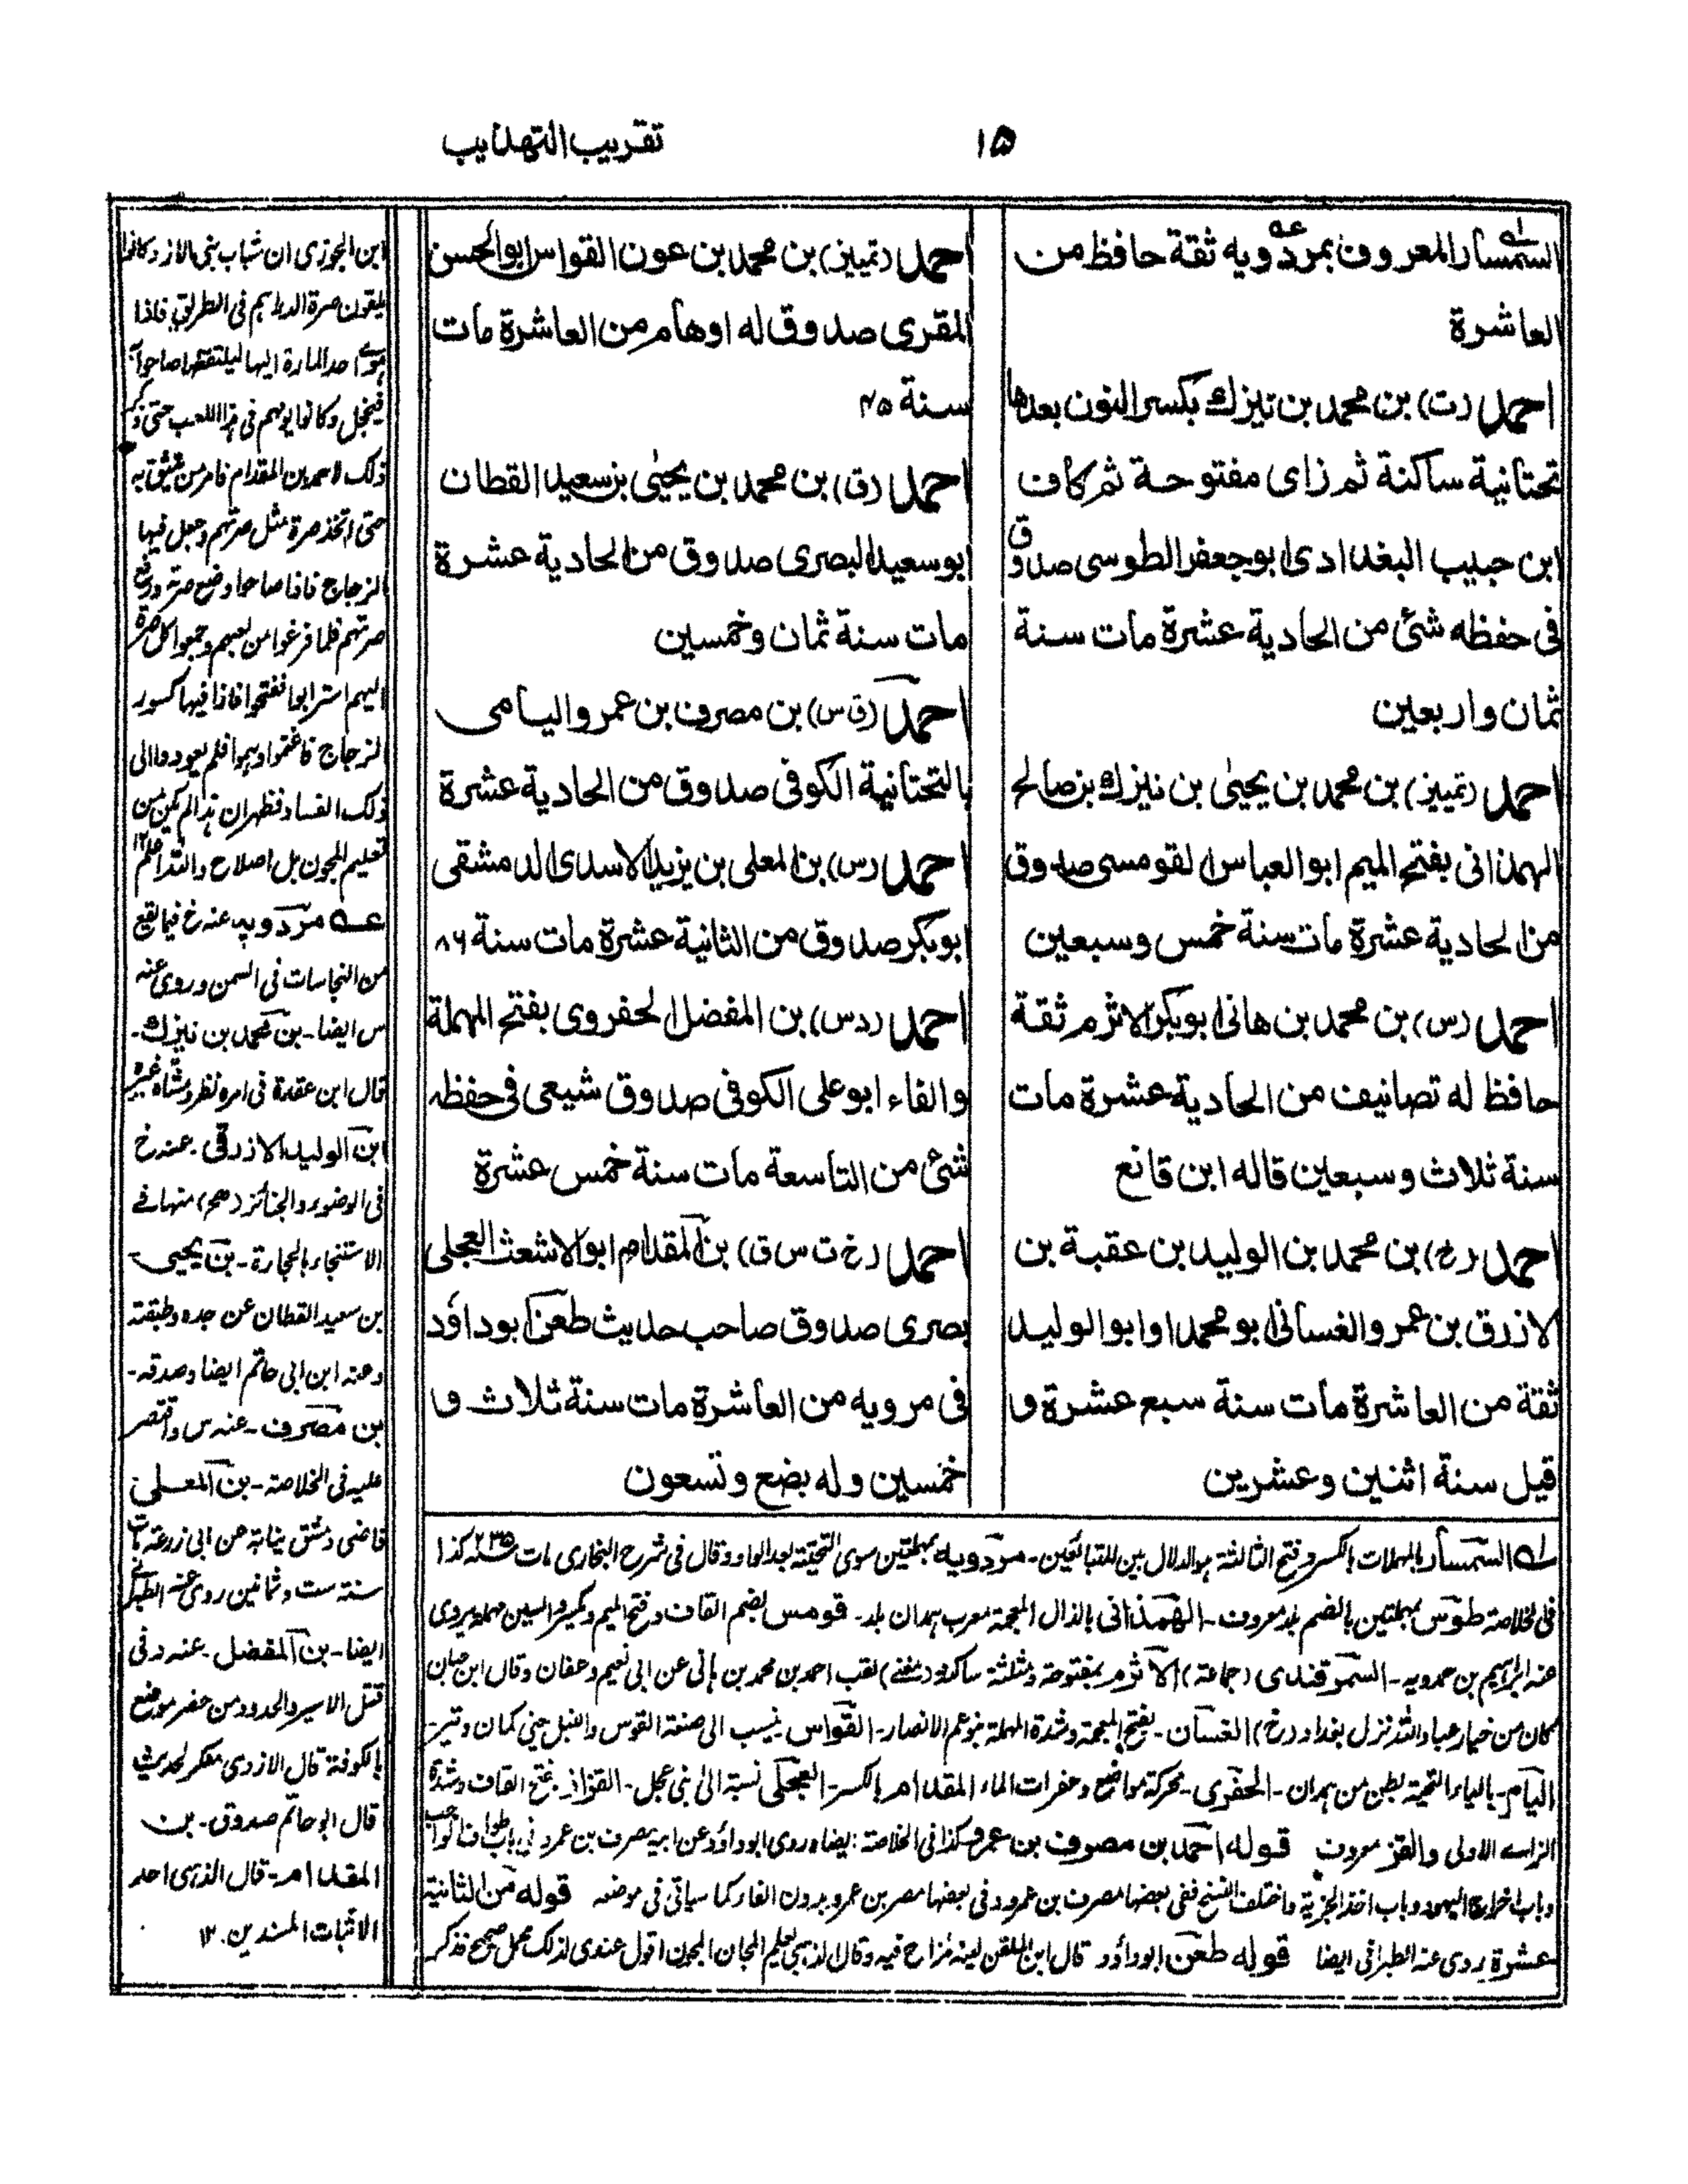 ١٥
تقريب التهذيب
السمسار المعروف بمردويه ثقة حافظ من
العاشرة
احمد (ت) بن محمد بن نيزك بكسر النون بعدها
تحتانية ساكنة ثم زاى مفتوحة ثم كاف
ابن حبيب البغدادى ابو جعفر الطوسى صدوق
فى حفظه شئ من الحادية عشرة مات سنة
ثمان واربعين
احمد (تمييز) بن محمد بن يحيى بن نيزك بن صالح
الهمذانى بفتح الميم ابو العباس القومسى صدوق
من الحادية عشرة مات سنة خمس وسبعين
احمد (س) بن محمد بن هانئ ابو بكر الاثرم ثقة
حافظ له تصانيف من الحادية عشرة مات
سنة ثلاث وسبعين قاله ابن قانع
احمد (خ) بن محمد بن الوليد بن عقبة بن
الازرق بن عمرو الغسانى ابو محمد او ابو الوليد
ثقة من العاشرة مات سنة سبع عشرة و
قيل سنة اثنين وعشرين
احمد (تمييز) بن محمد بن عون القواس ابو الحسن
المقرى صدوق له اوهام من العاشرة مات
سنة ۴۵
احمد (ق) بن محمد بن يحيى بن سعيد القطان
ابو سعيد البصرى صدوق من الحادية عشرة
مات سنة ثمان وخمسين
احمد (ق س) بن مصرف بن عمرو اليامى
بالتحتانية الكوفى صدوق من الحادية عشرة
احمد (س) بن المعلى بن يزيد الاسدى الدمشقى
ابو بكر صدوق من الثانية عشرة مات سنة ٨٦
احمد (دس) بن المفضل الحفروى بفتح المهملة
والفاء ابو على الكوفى صدوق شيعى فى حفظه
شئ من التاسعة مات سنة خمس عشرة
احمد (خ ت س ق) بن المقدام ابو الاشعث العجلى
بصرى صدوق صاحب حديث طعن ابو داؤد
فى مرويه من العاشرة مات سنة ثلاث و
خمسين وله بضع وتسعون
له السمسار بالمهملات بالكسر وفتح الثالثة هو الدلال بين المتبائعين - مردويه بمهملتين سوى التحتية بعد الواو وقال فى شرح البخارى مات سنة ٢٣٥ كذا
فى الخلاصة طوس بمهملتين بالضم بلد معروف - الهمذانى بالذال المعجمة معرب همدان بلد - قومس بضم القاف وفتح الميم وبكسر والسين مهملة يروى
عنه ابراهيم بن حمدويه - السمرقندى (جماعة) الاثرم بمفتوحة ومثلثة ساكنة (مغنے) لقب احمد بن محمد بن هانى عن ابى نعيم وعفان وقال ابن حبان
كان من خيار عباد الله نزل بغداد (خ) الغسان - بفتح المعجمة وشدة المهملة بنو عم الانصار - القواس ينسب الى صنعة القوس والنبل يعنى كمان وتير -
اليامى - بالياء التحتية بطن من همدان - الحفرى - محركة مواضع وحفرات الماء المقدام بالكسر - العجلى نسبة الى بنى عجل - القزاز - بفتح القاف وشدة
الزاے الاولى والقز معروف قوله احمد بن مصرف بن عمرو كذا فى الخلاصة ايضا وروى ابو داؤد عن ابيه مصرف بن عمرو فى باب
وباب اخراج اليهود وباب اخذ الجزية واختلف النسخ ففى بعضها مصرف بن عمرو وفى بعضها مصر بن عمرو بدون الفاء كما سياتى فى موضعه قوله من الثانية
عشرة روى عنه الطبرانى ايضا قوله طعن ابو داؤد قال ابن الملقن لينه لمزاح فيه وقال الذهبى لعليم المجان المجون اقول عندى لذلك محمل صحيح فذكر
ابن الجوزى ان شباب بنى الازد كانوا
يلقون صرة الدراهم فى الطريق فاذا
هوے احد المارة اليها ليلتقطها صاحوا
فيخجل وكانوا يوهم فى هذا اللعب حتى ذكر
ذلك لاحمد بن المقدام فامر من يثق به
حتى اتخذ صرة مثل صرتهم وجعل فيها
الزجاج فاذا صاحوا وضع صرته ورفع
صرتهم فلما فرغوا من لعبهم وجمعوا كل صرة
اليهم استرابوا ففتحوا فاذا فيها كسور
الزجاج فاغتموا وهموا فلم يعودوا الى
ذلك الفساد فظهر ان هذا لم يكن من
تعليم المجون بل اصلاح والله اعلم ١٢
عه مردويه عنه خ فيما يقع
من النجاسات فى السمن وروى عنه
س ايضا - بن محمد بن نيزك -
قال ابن عقدة فى امره نظر ومشاه غيره
ابن الوليد الازرقى - عنه خ
فى الوضوء والجنائز (هم) منها فے
الاستنجاء بالحجارة - بن يحيى -
بن سعيد القطان عن جده وطبقته
وعنه ابن ابى حاتم ايضا وصدقه -
بن مصرف - عنه س واقتصر
عليه فى الخلاصة - بن المعلى
قاضى دمشق نيابة عن ابى زرعة مات
سنة ست وثمانين روى عنه الطبرانے
ايضا - بن المفضل - عنه د فى
قتل الاسير والحدود من حفر موضع
بالكوفة قال الازدى منكر الحديث
قال ابو حاتم صدوق - بن
المقدام - قال الذهبى احد
الاثبات المسندين - ١٢